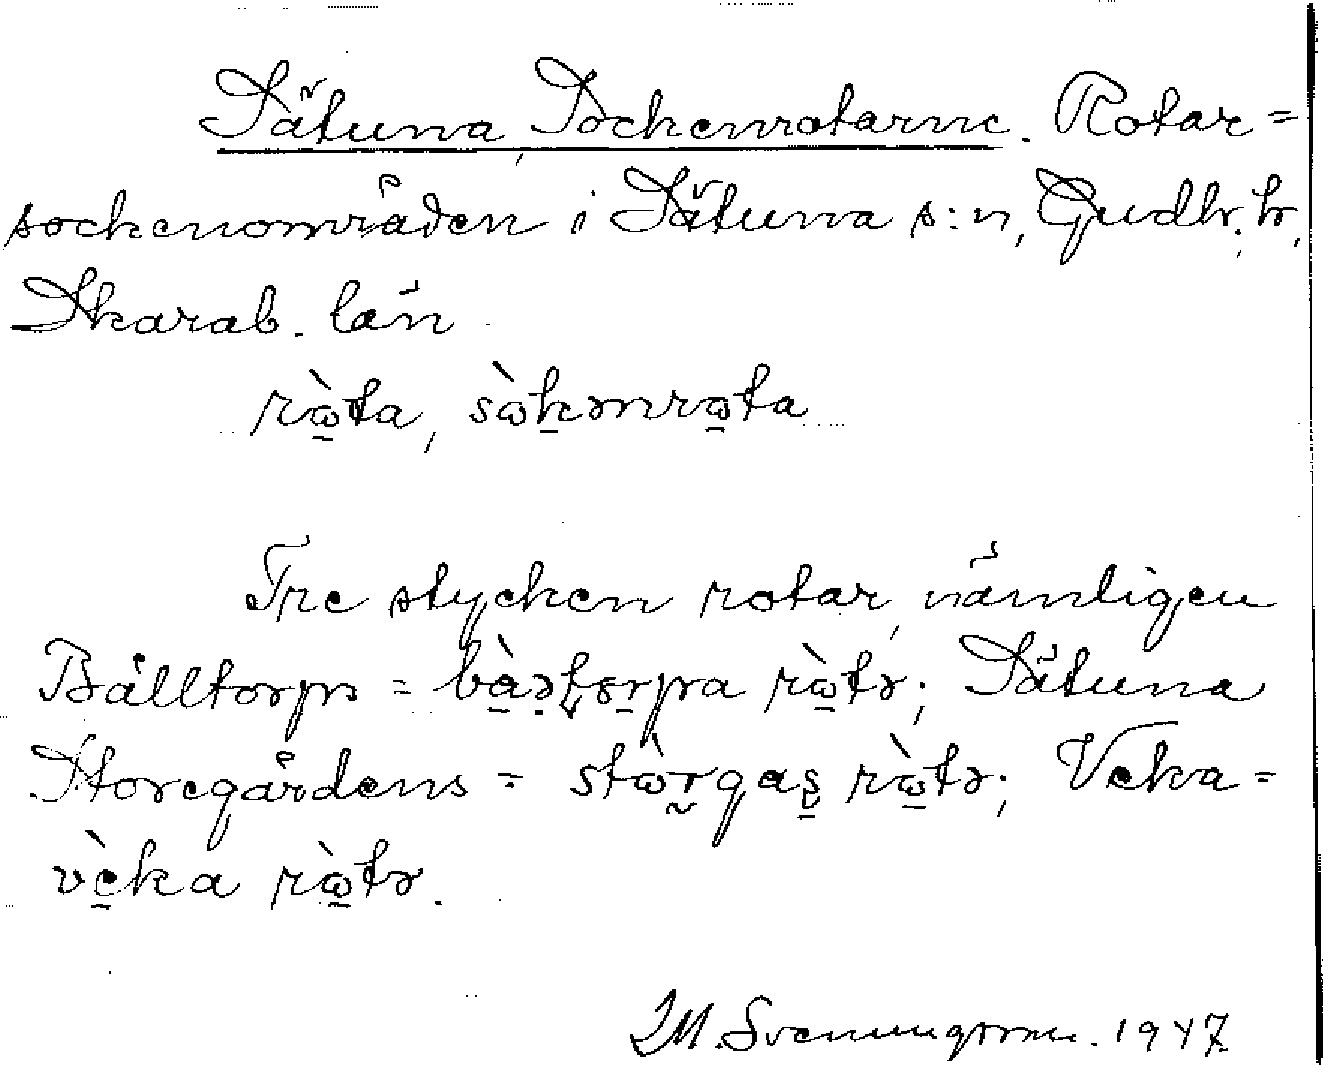 Sätuna, Sockenrotarne. Rotar =
sockenområden i Sätuna s:n, Gudh. h,
Skarab. län
rὼ̱ta, sὼḵənrω̱ta
Tre stycken rotar, nämligen
Bälltorps = rὼ̱tə; Sätuna
Storegårdens = rὼ̱tə; Veka =
vè̱ka rὼ̱tə.
M. Svenungsson. 1947